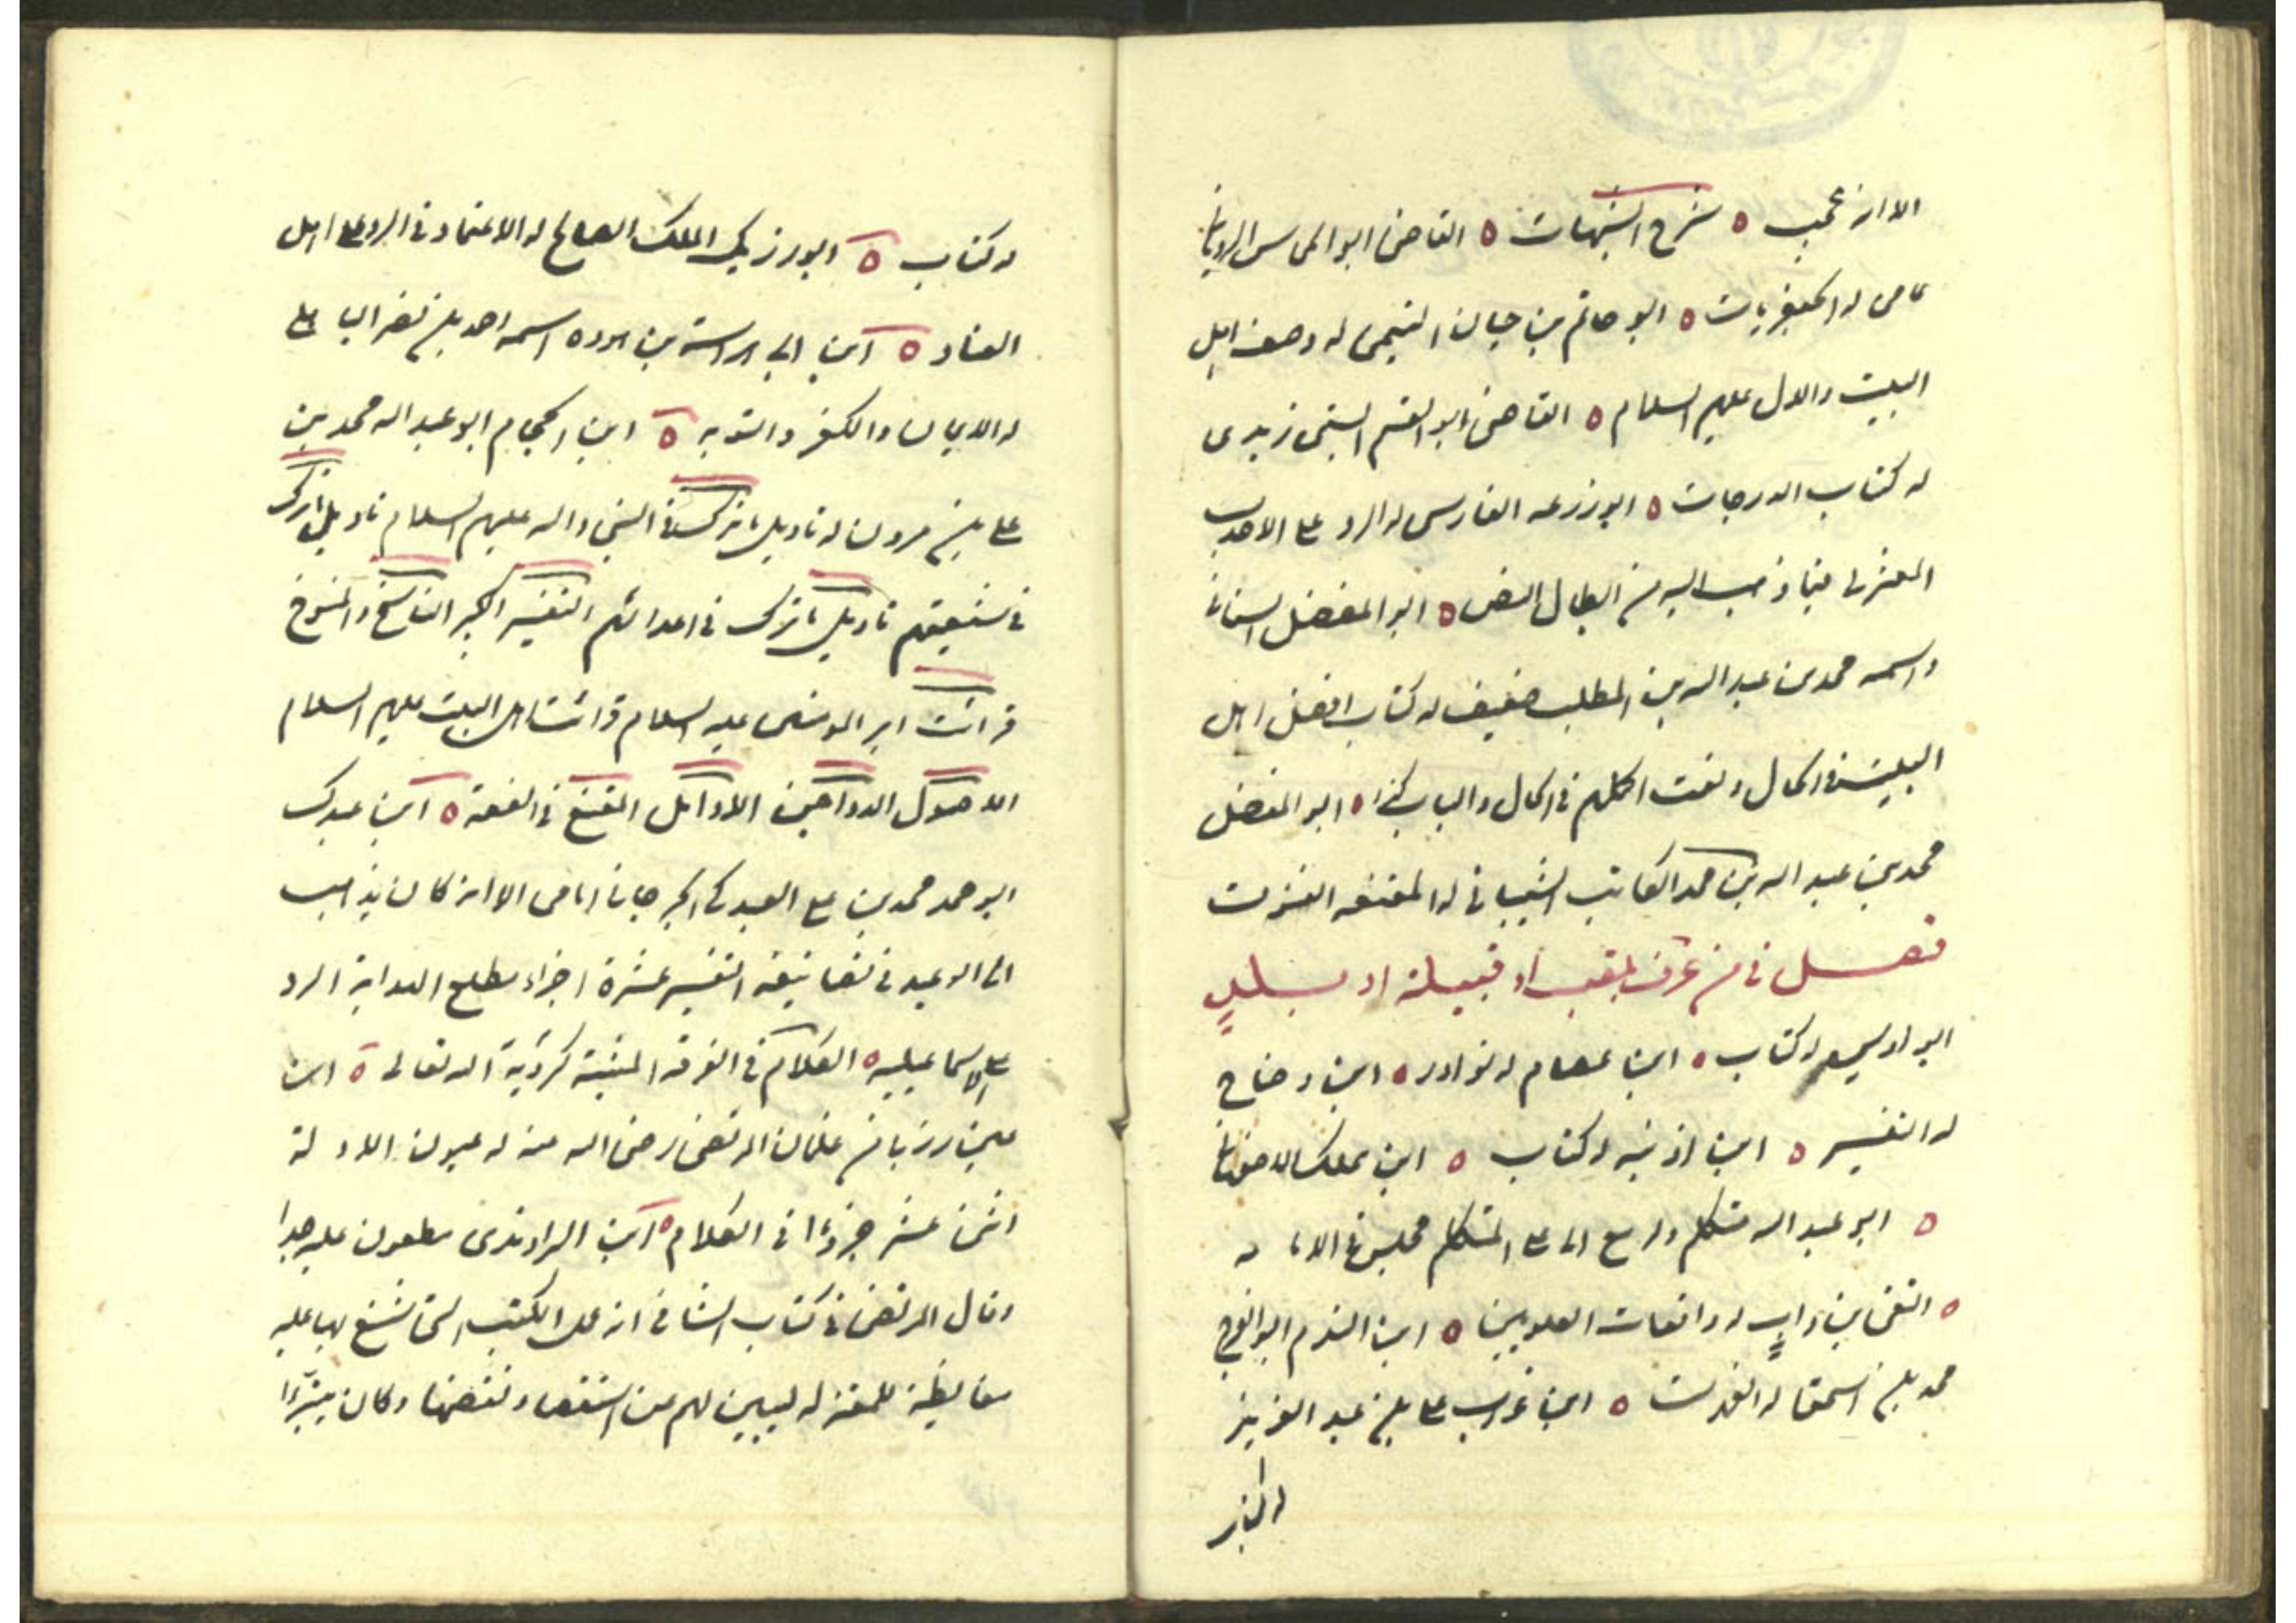 الا انه عجيب ه شرح الشبهات ه القاضي ابو المحاسن الروياني
عامي له الجعفريات ه ابو حاتم بن حيان التميمي له وصف اهل
البيت والال عليهم السلام ه القاضي ابو القسم البستي زيدي
له كتاب الدرجات ه ابو زرعه الفارسي له الرد على الاحدب
المعتزلي فيما ذهب اليه من ابطال النص ه ابو المفضل
واسمه محمد بن عبد الله بن المطلب ضعيف له كتاب افضل اهل
البيت في الحال ونعت الكلم في الحال والباب كبير ه ابو المفضل
محمد بن عبد الله بن محمد الكاتب الشيباني له المقنعه
فصل في من عرف بلقب او قبيلة او ببلد
ابو اويس له كتاب ه ابن عصام له نوادر ه ابن وضاح
له التفسير ه ابن اذنيه له كتاب ه ابن مملك الاصفهاني
ه ابو عبد الله متكلم وله مع ابي علي المتكلم مجلس في الامامه
ه التقي بن داب له واقعات العلويين ه ابن النديم ابو الفرج
محمد بن اسحق له الفهرست ه ابن غراب علي بن عبد العزيز
له كتاب ه ابو رزيك الملك الصالح له الاعتماد في الرد على اهل
العناد ه ابن ابي هراسة بن هوده اسمه احمد بن نصر الباهلي
له الايمان والكفر والتوبه ه ابن الحجام ابو عبد الله محمد بن
علي بن مروان له تاويل ما نزل في النبي واله عليهم السلام تاويل ما نزل
في شيعتهم تاويل ما نزل في اعدائهم التفسير الكبير الناسخ والمنسوخ
قرائت امير المومنين عليه السلام قرائت اهل البيت عليهم السلام
الاصول الدواجن الاوائل المقنع في الفقه ه ابن عبدك
ابو محمد محمد بن علي العبدكي الجرجاني امامي الا انه كان يذهب
الى الوعيد في تصانيفه التفسير عشرة اجزاء مطلع الهداية الرد
على الاسماعيليه ه الكلام في الفرقه المثبتة لرؤية الله تعالى ه ابن
رزبا من غلمان المرتضى رضى الله عنه له عيون الادلة
اثنى عشر جزءا في الكلام ه ابن الراوندي مطعون عليه جدا
وقال المرتضى في كتاب الشافي انه عمل الكتب التي شنع بها عليه
مغايظة للمعتزله ليبين لهم عن استقصاء نقضها وكان يتبرّا